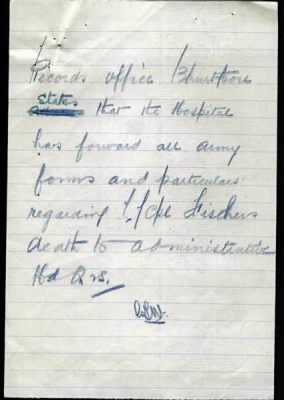 Records office
States that the Hospital
has forward all army
forms and particulars
regarding L/Cpl Fischers
death to administrative
Hd Qrs.